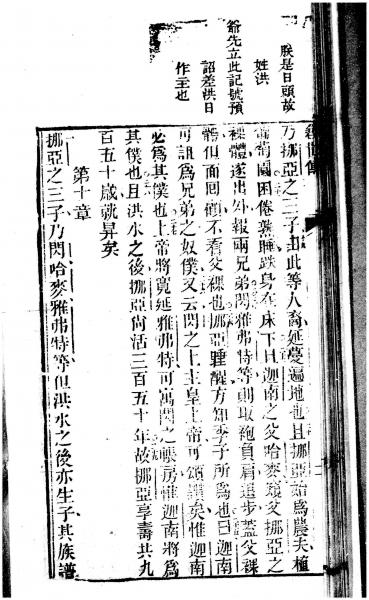 朕是日頭故
姓洪
爺先立此記號預
詔差洪日
作主也
乃挪亞之三子由此等人裔延蔓遍地也且挪亞始為農夫植
葡萄園困倦熟睡跌身在床下且迦南之父哈麥窺父挪亞之
裸體遂出外報兩兄弟閃雅弗特等則取袍自肩退步蓋父裸
體但面回顧不看父裸也挪亞睡醒方知季子所為也曰迦南
可詛為兄弟之奴僕又云閃之上主皇上帝可頌讚矣惟迦南
必為其僕也上帝將寬延雅弗特可寓閃之帳房惟迦南將為
其僕也且洪水之後挪亞尚活三百五十年故挪亞享壽共九
百五十歲就昇矣
第十章
挪亞之三子乃閃哈麥雅弗特等但洪水之後亦生子其族譜